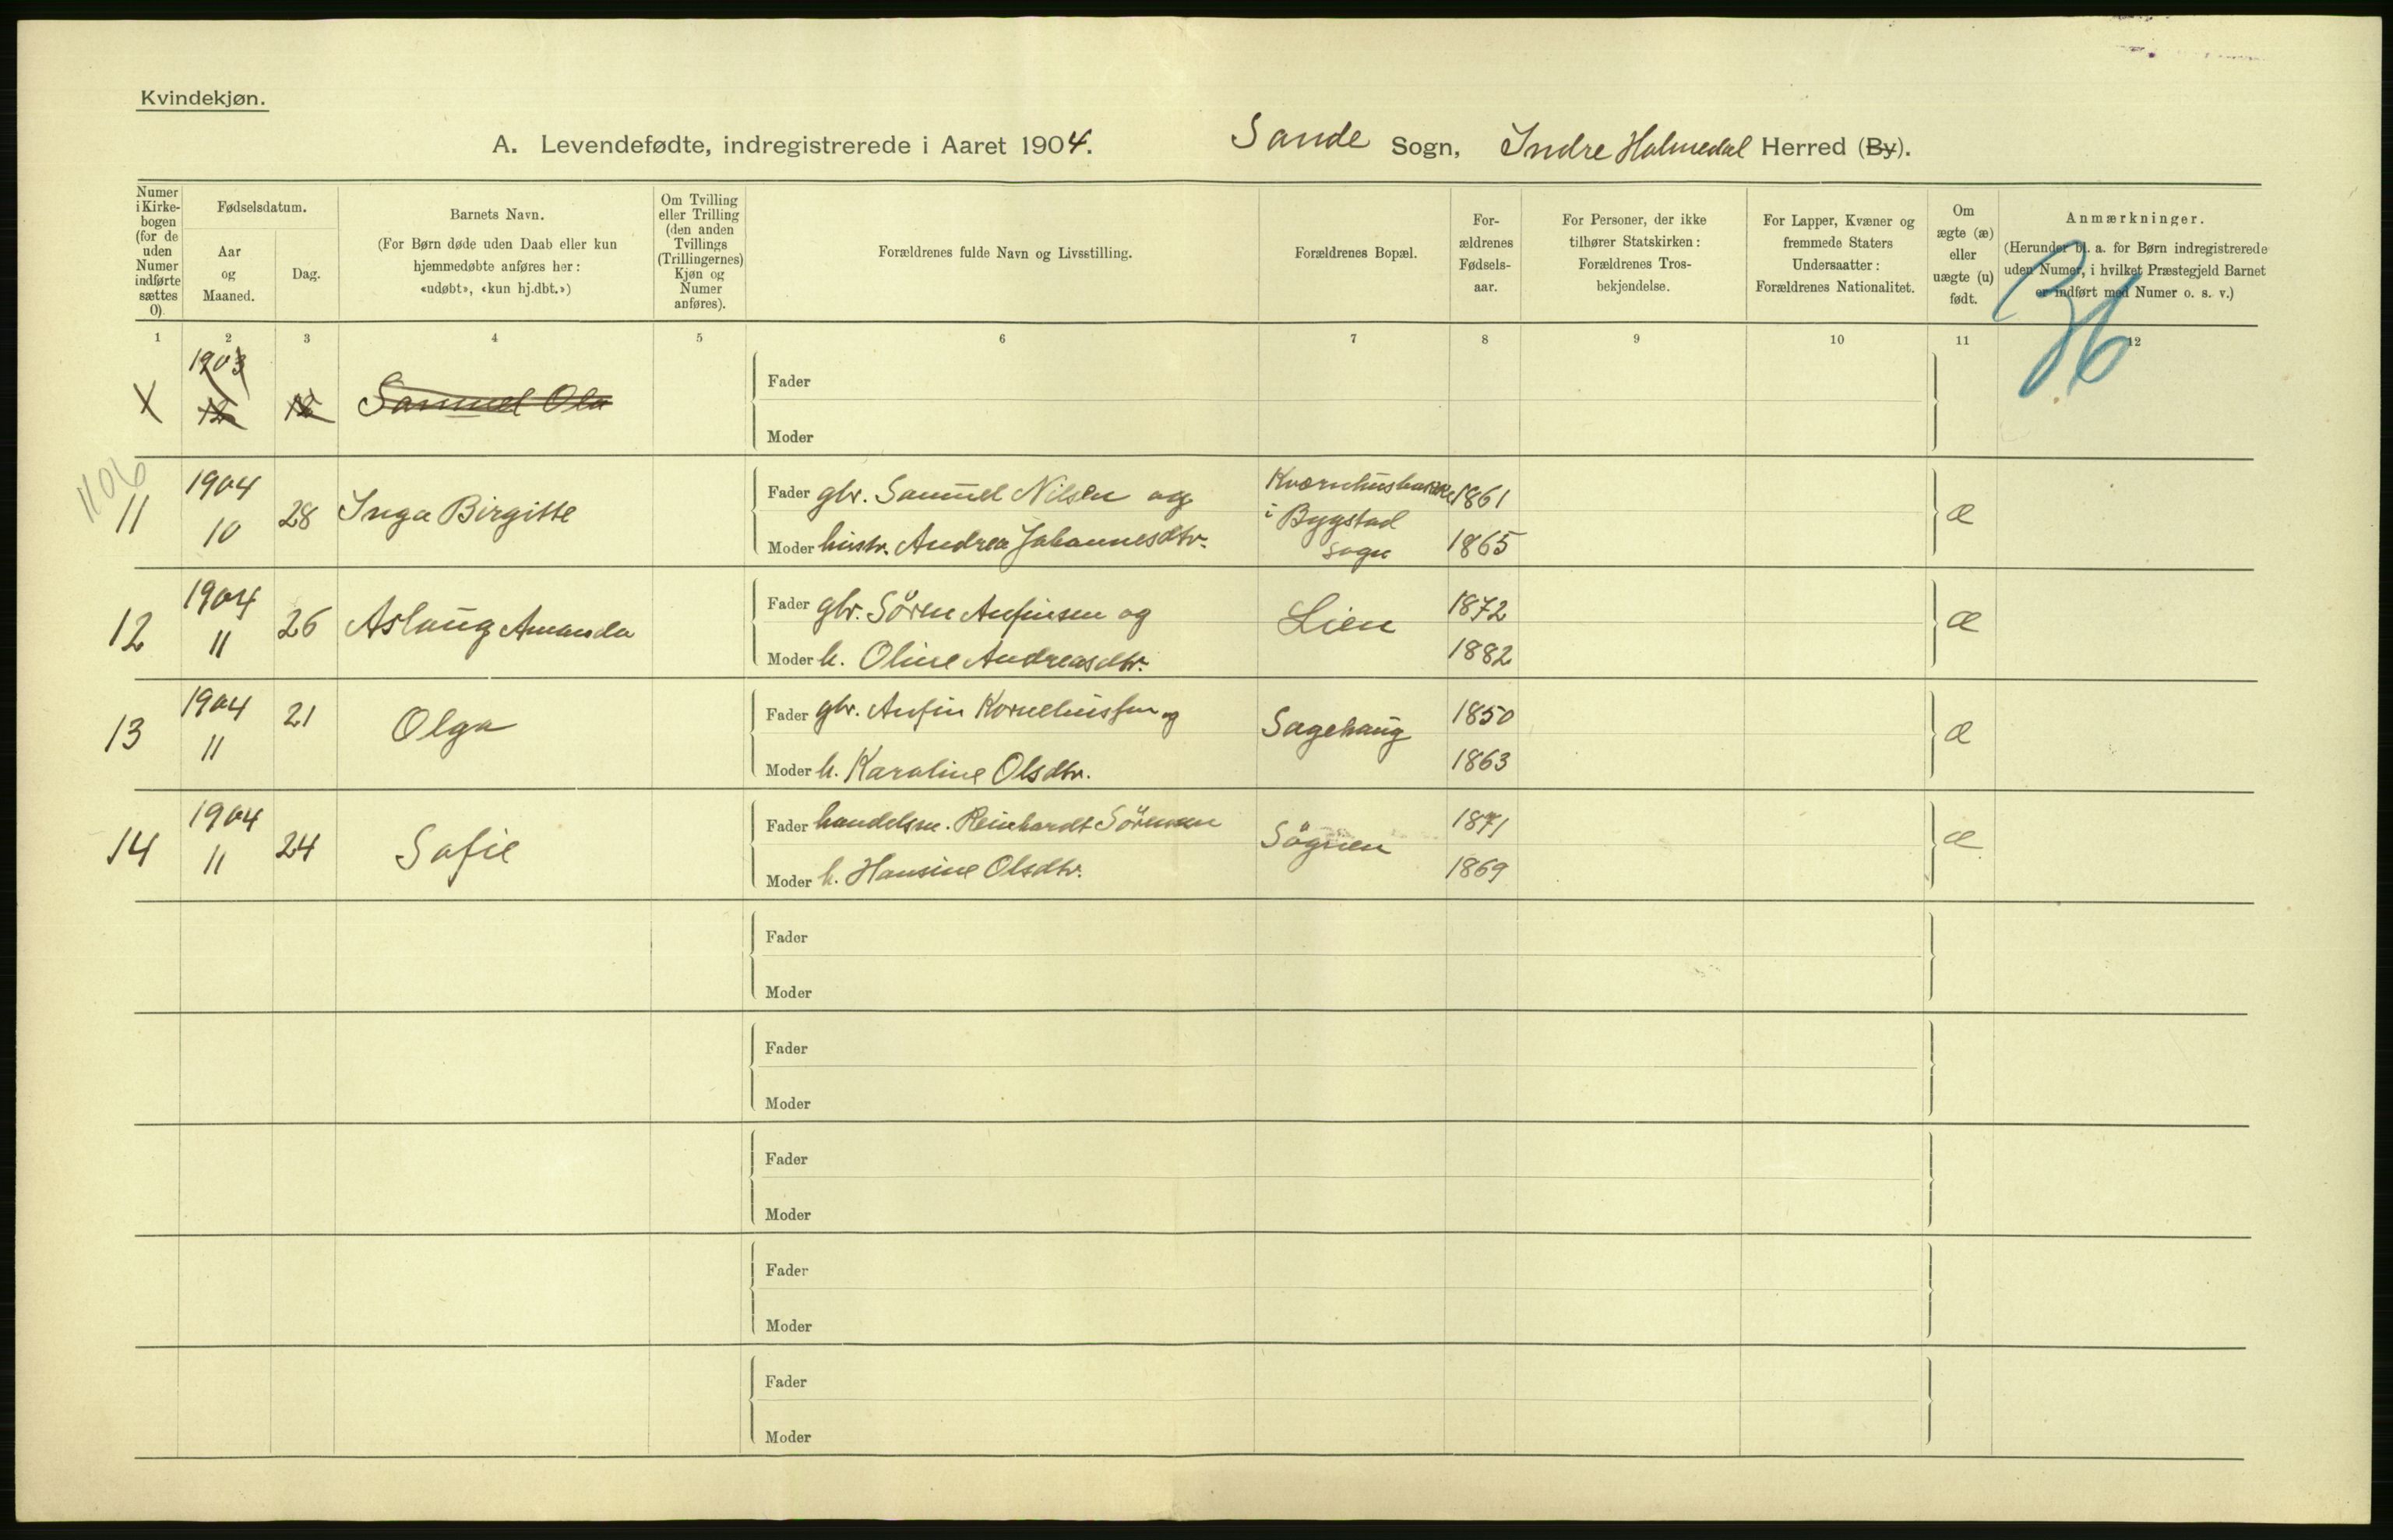 Kvindekjøn.
A. Levendefødte, indregistrerede i Aaret 1904. Sande Sogn, Indre Holmedal Herred (By).
Numer i Kirke-bogen (for de uden Numer indførte sættes 0).
Fødselsdatum.
Aar og Maaned.
Dag.
Barnets Navn.
(For Børn døde uden Daab eller kun hjemmedøbte anføres her: «udøbt», «kun hj.dbt.»)
Om Tvilling eller Trilling (den anden Tvillings (Trillingernes) Kjøn og Numer anføres).
Forældrenes fulde Navn og Livsstilling.
Forældrenes Bopæl.
For-ældrenes Fødsels-aar.
For Personer, der ikke tilhører Statskirken: Forældrenes Tros-bekjendelse.
For Lapper, Kvæner og fremmede Staters Undersaatter: Forældrenes Nationalitet.
Om ægte (æ) eller uægte (u) født.
Anmærkninger.
(Herunder bl. a. for Børn indregistrerede uden Numer, i hvilket Præstegjeld Barnet er indført med Numer o. s. v.)
36
1 2 3 4 5 6 7 8 9 10 11 12
1903
X 12 12 Samuel Ola
Fader
Moder
1106
11 1904 10 28 Inga Birgitte
Fader gbr. Samuel Nilsen og 1861
Moder hustr. Andrea Johannesdtr. 1865
i Bygstad
sogn
æ
12 1904 11 26 Aslaug Amanda
Fader gbr. Søren Anfinsen og Lien 1872
Moder h. Oline Andreasdtr. 1882
æ
13 1904 11 21 Olga
Fader gbr. Anfin Korneliussen og Sagehaug 1850
Moder h. Karoline Olsdtr. 1863
æ
14 1904 11 24 Sofie
Fader handelsm. Reinhardt Sørensen Søgnen 1871
Moder h. Hansine Olsdtr. 1869
æ
Fader
Moder
Fader
Moder
Fader
Moder
Fader
Moder
Fader
Moder